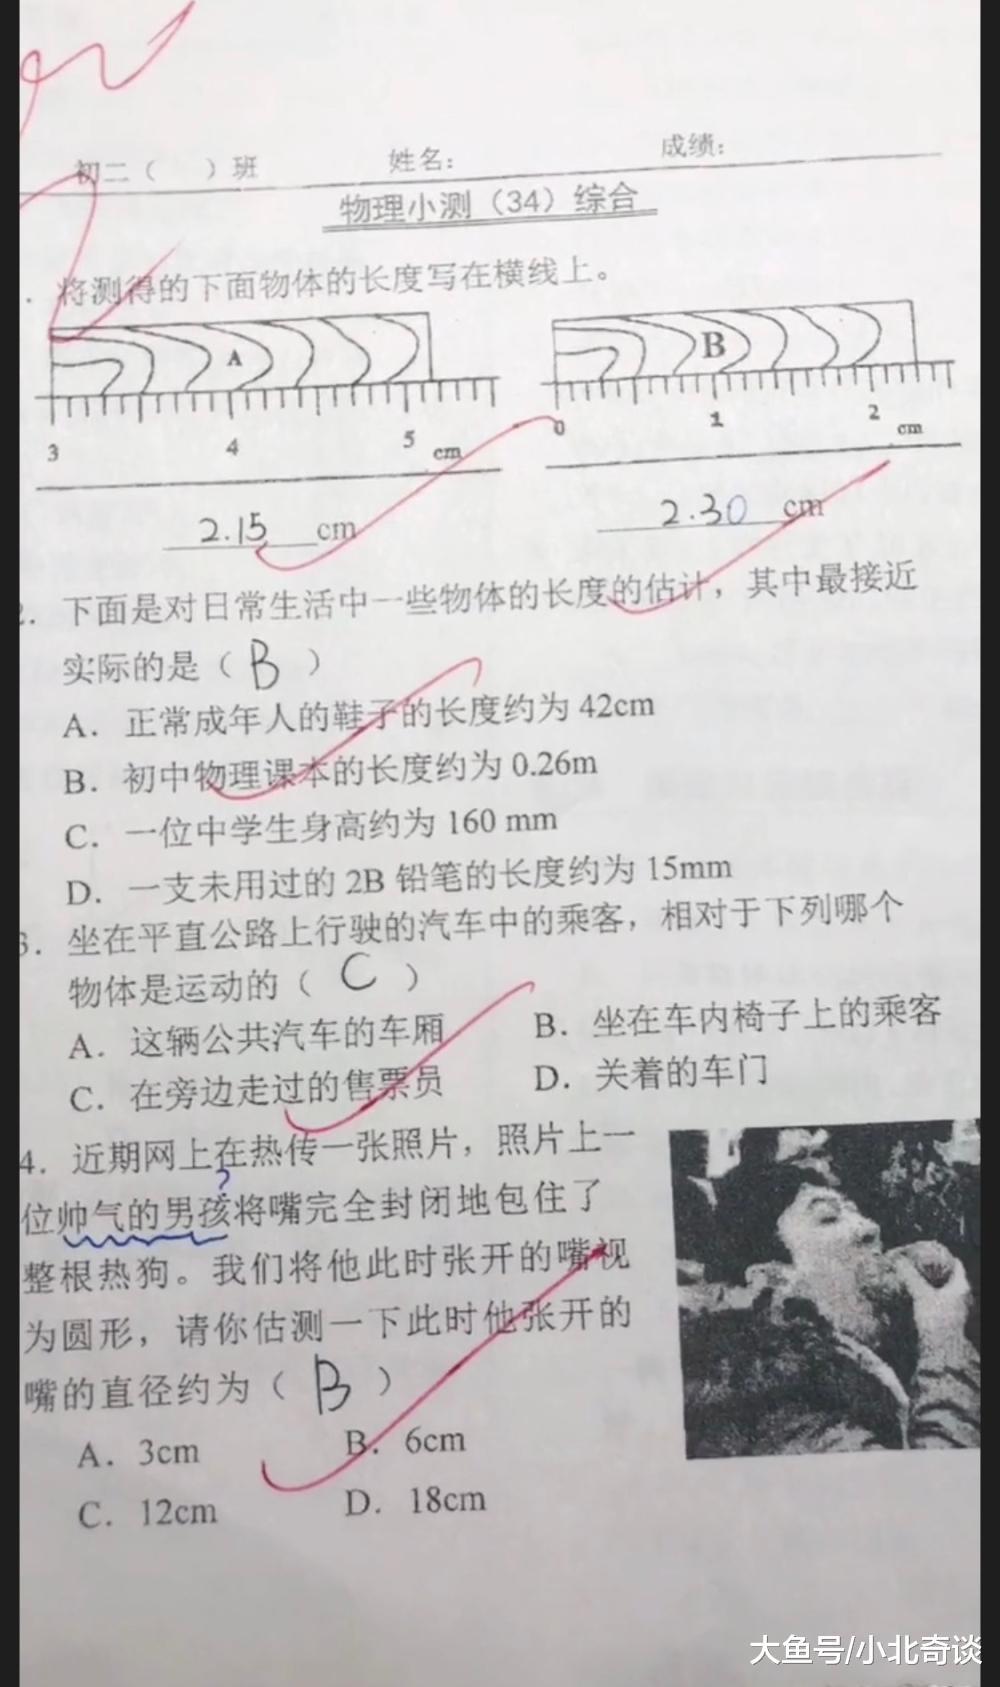 初二（ ）班 姓名： 成绩：
物理小测（34）综合
. 将测得的下面物体的长度写在横线上。
A B
3 4 5 cm 0 1 2 cm
2.15 cm 2.30 cm
2. 下面是对日常生活中一些物体的长度的估计，其中最接近
实际的是（ B ）
A．正常成年人的鞋子的长度约为 42cm
B．初中物理课本的长度约为 0.26m
C．一位中学生身高约为 160 mm
D．一支未用过的 2B 铅笔的长度约为 15mm
3. 坐在平直公路上行驶的汽车中的乘客，相对于下列哪个
物体是运动的（ C ）
A．这辆公共汽车的车厢 B．坐在车内椅子上的乘客
C．在旁边走过的售票员 D．关着的车门
4. 近期网上在热传一张照片，照片上一
?
位帅气的男孩将嘴完全封闭地包住了
整根热狗。我们将他此时张开的嘴视
为圆形，请你估测一下此时他张开的
嘴的直径约为（ B ）
A．3cm B．6cm
C．12cm D．18cm
大鱼号/小北奇谈